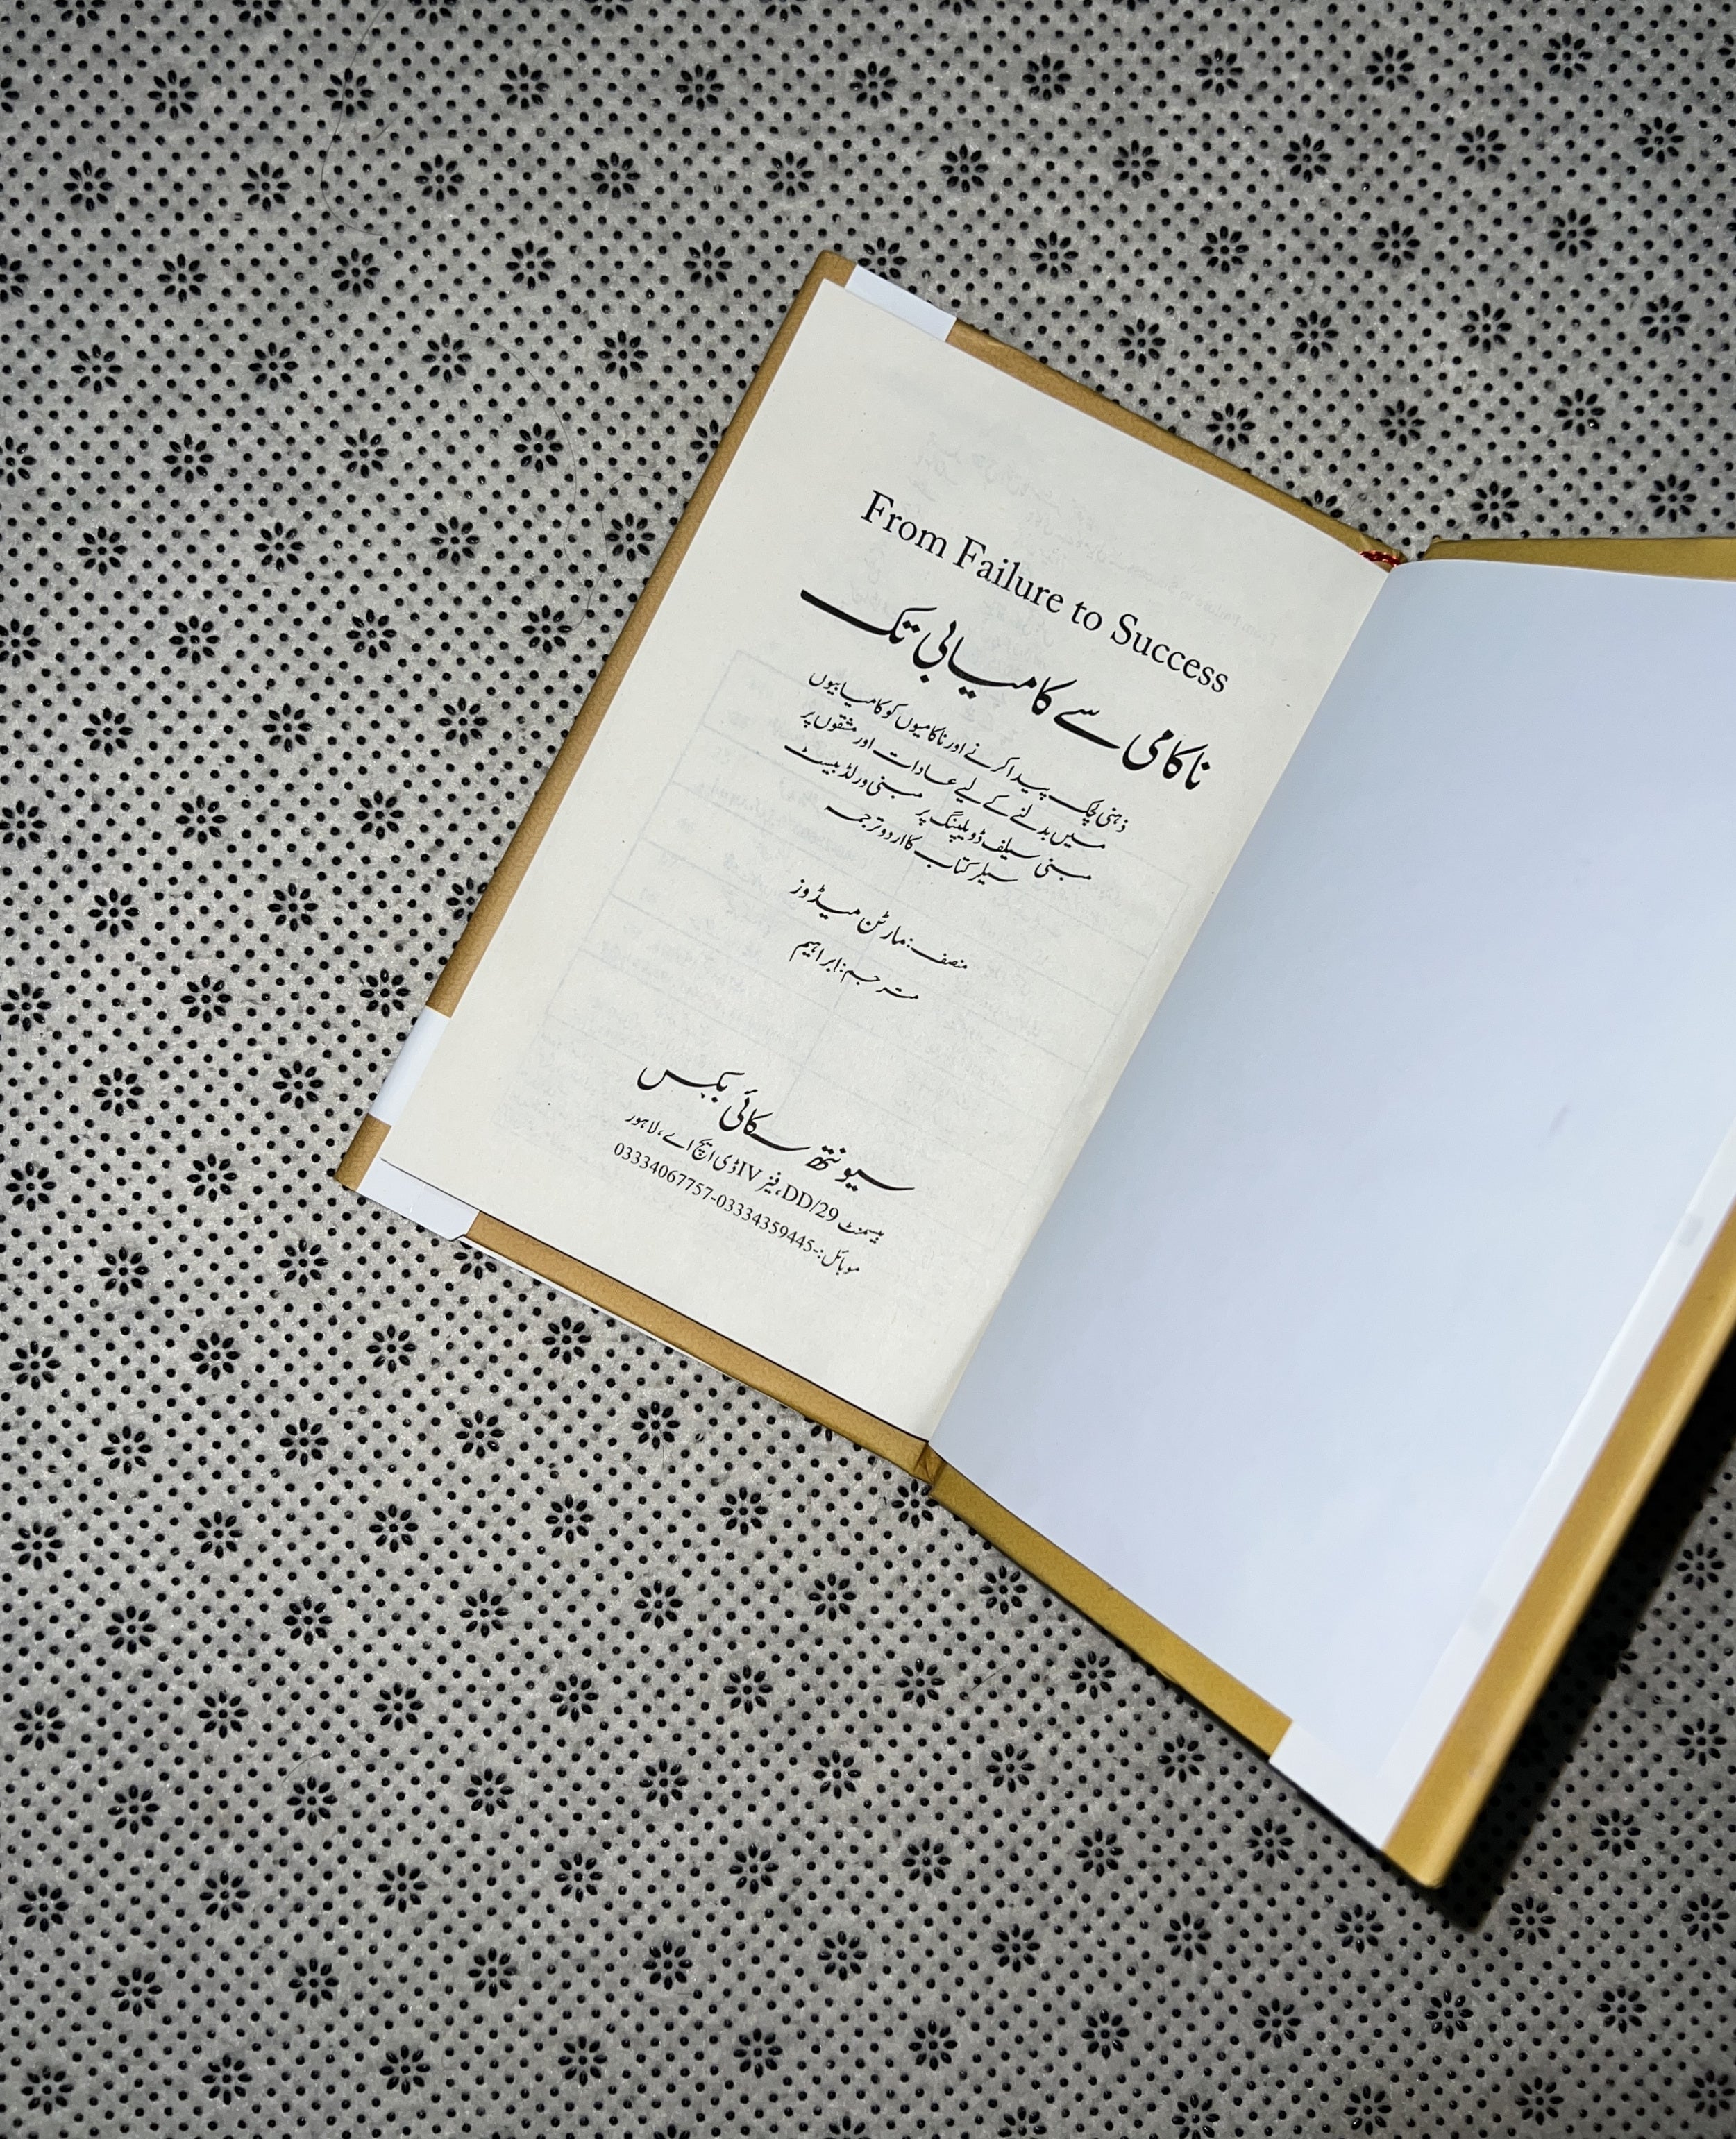 From Failure to Success
ناکامی سے کامیابی تک
ذہنی لچک پیدا کرنے اور ناکامیوں کو کامیابیوں
میں بدلنے کے لیے عادات اور مشقوں پر
مبنی سیلف ڈویلپنگ پر مبنی ورلڈ بیسٹ
سیلر کتاب کا اردو ترجمہ
منصف: مارٹن میڈوز
مترجم: ابراہیم
سیونتھ سکائی بکس
بیسمنٹ DD/29، فیز IV ڈی ایچ اے، لاہور
موبائل:-03334067757-03334359445